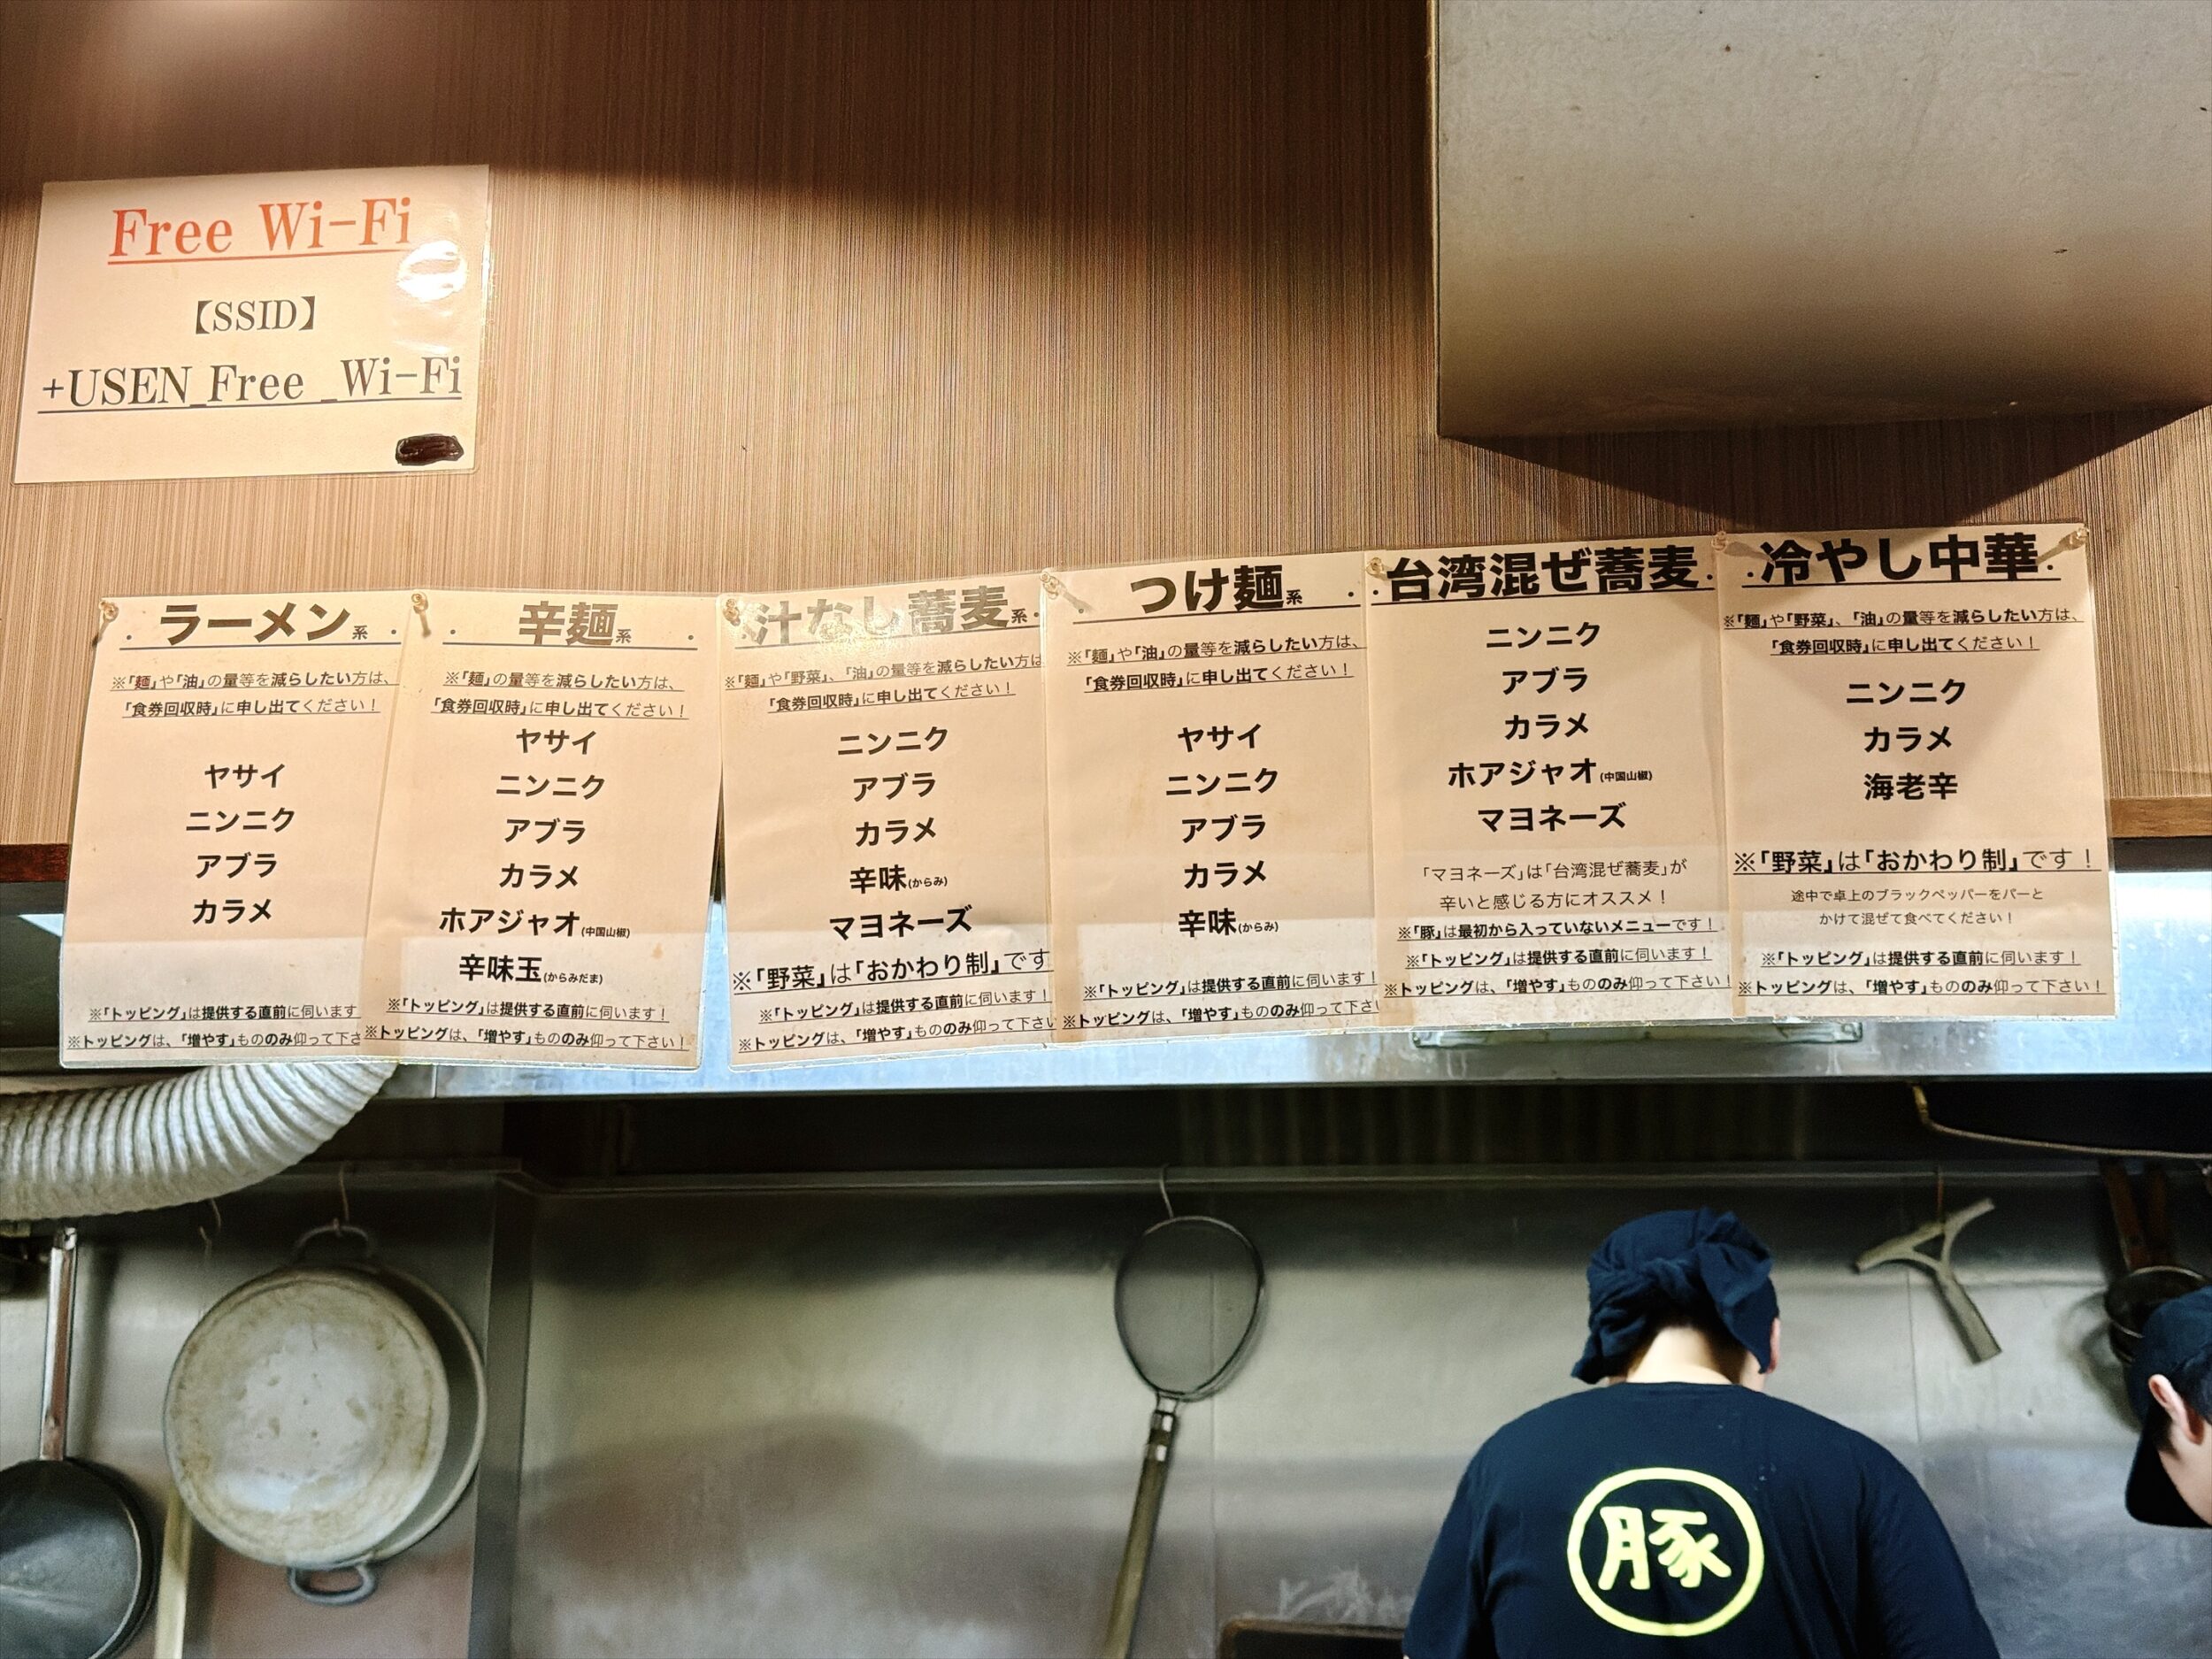 Free Wi-Fi
【SSID】
+USEN_Free _Wi-Fi
ラーメン系
※「麺」や「油」の量等を減らしたい方は、
「食券回収時」に申し出てください！
ヤサイ
ニンニク
アブラ
カラメ
※「トッピング」は提供する直前に伺います
※トッピングは、「増やす」もののみ仰って下さ
辛麺系
※「麺」の量等を減らしたい方は、
「食券回収時」に申し出てください！
ヤサイ
ニンニク
アブラ
カラメ
ホアジャオ(中国山椒)
辛味玉(からみだま)
※「トッピング」は提供する直前に伺います！
※トッピングは、「増やす」もののみ仰って下さい！
汁なし蕎麦系
※「麺」や「野菜」、「油」の量等を減らしたい方は
「食券回収時」に申し出てください！
ニンニク
アブラ
カラメ
辛味(からみ)
マヨネーズ
※「野菜」は「おかわり制」です
※「トッピング」は提供する直前に伺います！
※トッピングは、「増やす」もののみ仰って下さい
つけ麺系
※「麺」や「油」の量等を減らしたい方は、
「食券回収時」に申し出てください！
ヤサイ
ニンニク
アブラ
カラメ
辛味(からみ)
※「トッピング」は提供する直前に伺います！
※トッピングは、「増やす」もののみ仰って下さい
台湾混ぜ蕎麦
ニンニク
アブラ
カラメ
ホアジャオ(中国山椒)
マヨネーズ
「マヨネーズ」は「台湾混ぜ蕎麦」が
辛いと感じる方にオススメ！
※「豚」は最初から入っていないメニューです！
※「トッピング」は提供する直前に伺います！
※トッピングは、「増やす」もののみ仰って下さい！
冷やし中華
※「麺」や「野菜」、「油」の量等を減らしたい方は、
「食券回収時」に申し出てください！
ニンニク
カラメ
海老辛
※「野菜」は「おかわり制」です！
途中で卓上のブラックペッパーをパーと
かけて混ぜて食べてください！
※「トッピング」は提供する直前に伺います！
※トッピングは、「増やす」もののみ仰って下さい！
豚